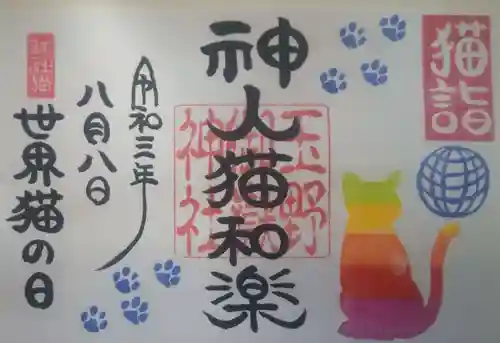 猫詣
神人猫和楽
玉野
御嶽
神社
令和三年
八月八日
世界猫の日